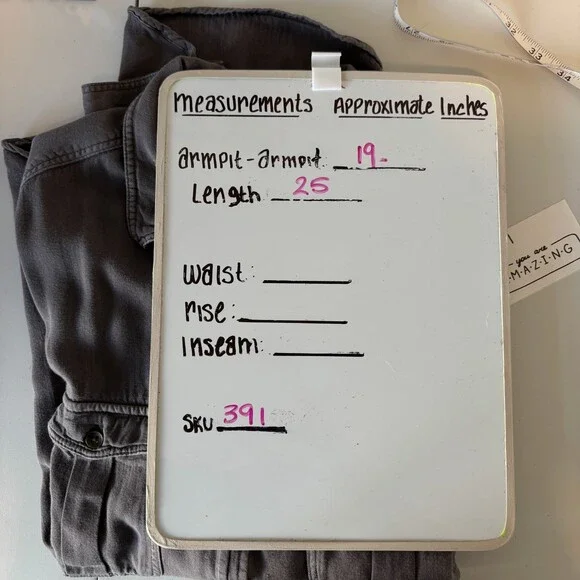 measurements Approximate Inches
armpit-armpit 19-
Length 25
waist:
rise:
inseam:
SKU 391
you are
A·M·A·Z·I·N·G
33
34